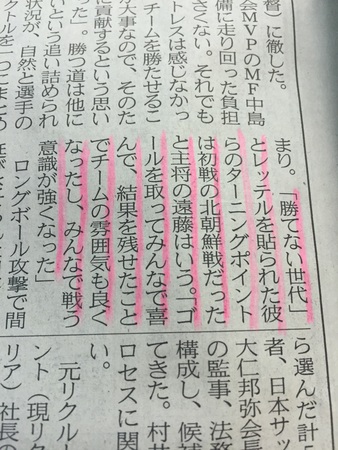 督）に徹した。
会MVPのMF中島
備に走り回った負担
さくない。それでも
トレスは感じなかっ
チームを勝たせるこ
大事なので、そのた
に貢献するという思い
った」。勝つ道は他に
いという追い詰められ
状況が、自然と選手の
クトルを一つにまとめ
まり。「勝てない世代」
とレッテルを貼られた彼
らのターニングポイント
は初戦の北朝鮮戦だった
と主将の遠藤はいう。「ゴ
ールを取ってみんなで喜
んで、結果を残せたこと
でチームの雰囲気も良く
なったし、みんなで戦う
意識が強くなった」
ロングボール攻撃で間
ら選んだ計5
者、日本サッ
大仁邦弥会長
の監事、法務
構成し、候補
てきた。村井
ロセスに関
い。
元リクルー
ント（現リク
リア）社長の